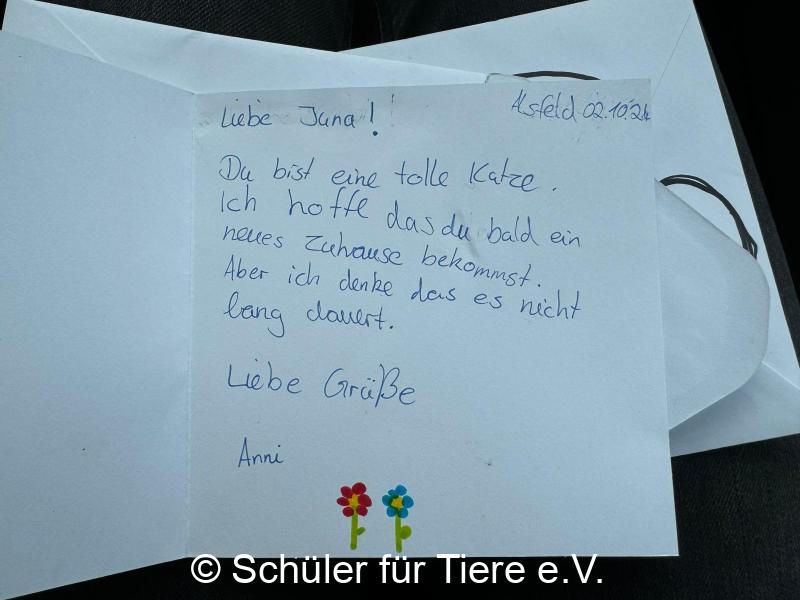 Alsfeld 02.10.24
Liebe Juna!
Du bist eine tolle Katze.
Ich hoffe das du bald ein
neues Zuhause bekommst.
Aber ich denke das es nicht
lang dauert.
Liebe Grüße
Anni
© Schüler für Tiere e.V.